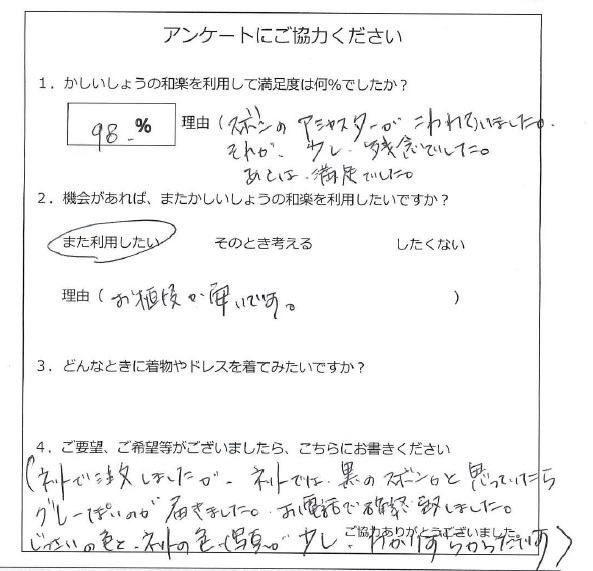 アンケートにご協力ください
1．かしいしょうの和楽を利用して満足度は何%でしたか？
98 %
理由（ズボンのアジャスターがこわれていました。
それが、少し、残念でした。
あとは、満足でした。
2．機会があれば、またかしいしょうの和楽を利用したいですか？
また利用したい そのとき考える したくない
理由（お値段が安いです。）
3．どんなときに着物やドレスを着てみたいですか？
4．ご要望、ご希望等がございましたら、こちらにお書きください
（ネットで注文しましたが、ネットでは、黒のズボンかと思っていたら
グレーっぽいのが届きました。お電話で確認致しました。
ご協力ありがとうございました。
じっさいの色と、ネットの色（写真）が少し、わかりずらかったです）